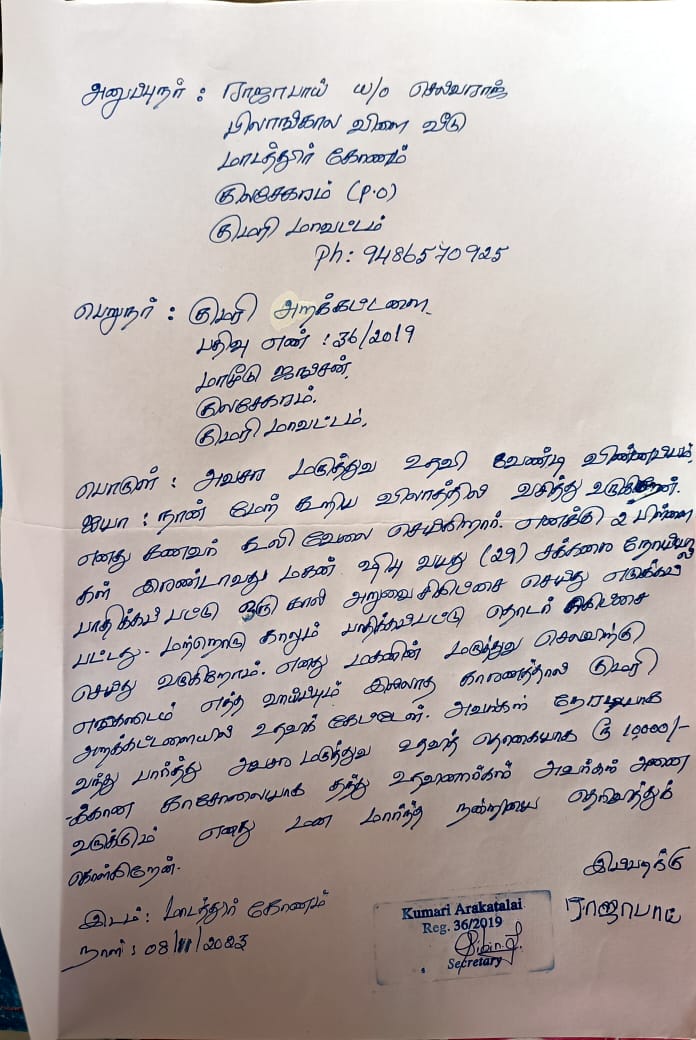 அனுப்புநர் : ராஜாபாய் w/o செல்வராஜ்
பிலாங்கால விளை வீடு
மாடத்தூர் கோணம்
குலசேகரம் (P.O)
குமரி மாவட்டம்
Ph: 9486570925
பெறுநர் : குமரி அறக்கட்டளை.
பதிவு எண் : 36/2019
மாமூடு ஜங்சன்.
குலசேகரம்.
குமரி மாவட்டம்.
பொருள் : அவசர மருத்துவ உதவி வேண்டி விண்ணப்பம்
ஐயா : நான் மேற் கூறிய விலாசத்தில் வசித்து வருகிறேன்.
எனது கணவர் கூலி வேலை செய்கிறார். எனக்கு 2 பிள்ளை
கள் இரண்டாவது மகன் ஷிபு வயது (29) சக்கரை நோயால்
பாதிக்கப் பட்டு ஒரு கால் அறுவை சிகிட்சை செய்து எடுக்கப்
பட்டது. மற்றொரு காலும் பாதிக்கப்பட்டு தொடர் சிகிட்சை
செய்து வருகிறோம். எனது மகனின் மருத்துவ செலவிற்கு
எங்களிடம் எந்த வாய்ப்பும் இல்லாத காரணத்தால் குமரி
அறக்கட்டளையில் உதவக் கேட்டேன். அவர்கள் நேரடியாக
வந்து பார்த்து அவசர மருத்துவ உதவித் தொகையாக ரூ 10,000/-
-க்கான காசோலையாக தந்து உதவினார்கள் அவர்கள் அனை
வருக்கும் எனது மன மார்ந்த நன்றியை தெரிவித்துக்
கொள்கிறேன்.
இப்படிக்கு
ராஜாபாய்
இடம் : மாடத்தூர் கோணம்
நாள் : 08/11/2023
Kumari Arakatalai
Reg. 36/2019
Secretary